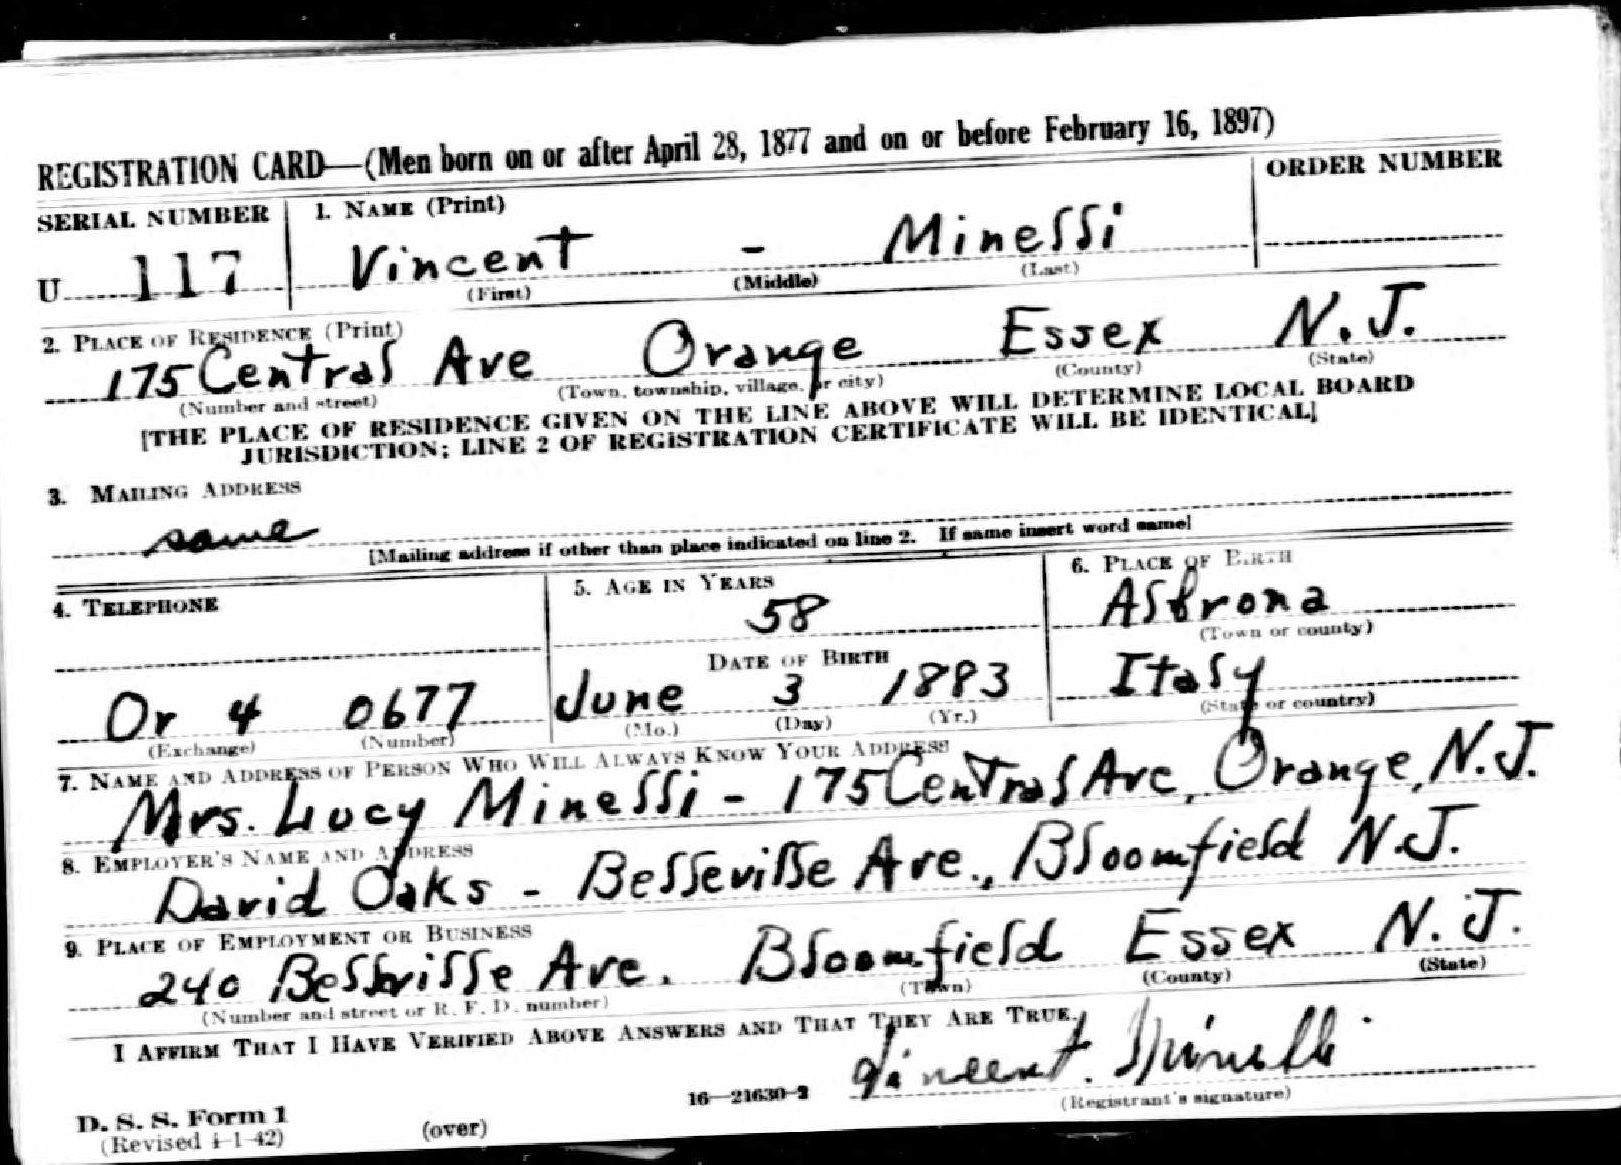 REGISTRATION CARD—(Men born on or after April 28, 1877 and on or before February 16, 1897)
SERIAL NUMBER 1. NAME (Print) ORDER NUMBER
U 117 Vincent - Minelli
(First) (Middle) (Last)
2. PLACE OF RESIDENCE (Print)
175 Central Ave Orange Essex N.J.
(Number and street) (Town, township, village, or city) (County) (State)
[THE PLACE OF RESIDENCE GIVEN ON THE LINE ABOVE WILL DETERMINE LOCAL BOARD
JURISDICTION; LINE 2 OF REGISTRATION CERTIFICATE WILL BE IDENTICAL]
3. MAILING ADDRESS
same
[Mailing address if other than place indicated on line 2. If same insert word same]
4. TELEPHONE 5. AGE IN YEARS 6. PLACE OF BIRTH
58
(Town or county)
DATE OF BIRTH
Or 4 0677 June 3 1883 Italy
(Exchange) (Number) (Mo.) (Day) (Yr.) (State or country)
7. NAME AND ADDRESS OF PERSON WHO WILL ALWAYS KNOW YOUR ADDRESS
Mrs. Lucy Minelli - 175 Central Ave, Orange, N.J.
8. EMPLOYER'S NAME AND ADDRESS
David Oaks - Belleville Ave., Bloomfield N.J.
9. PLACE OF EMPLOYMENT OR BUSINESS
240 Belleville Ave. Bloomfield Essex N.J.
(Number and street or R. F. D. number) (Town) (County) (State)
I AFFIRM THAT I HAVE VERIFIED ABOVE ANSWERS AND THAT THEY ARE TRUE.
Vincent. Minelli.
(Registrant's signature)
16—21630-2
D. S. S. Form 1
(Revised 4-1-42) (over)